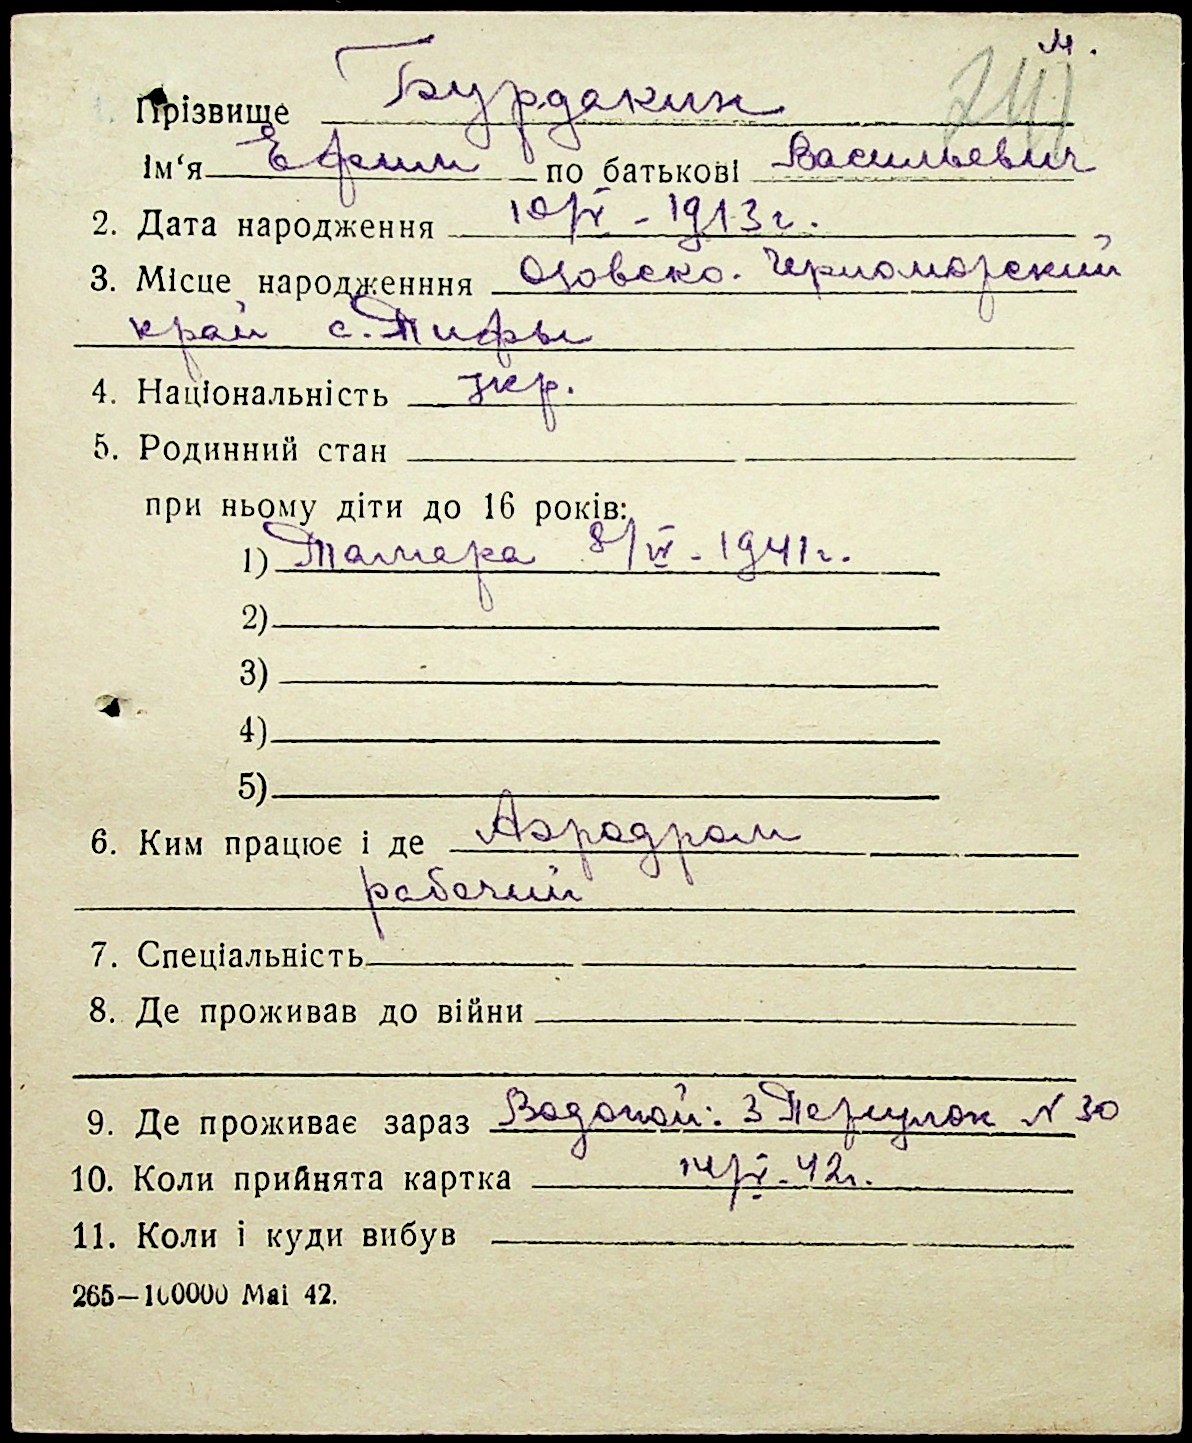 м.
241
1. Прізвище Бурдакин
Ім‘я Ефим по батькові Васильевич
2. Дата народження 10/V - 1913 г.
3. Місце народженння Озовско. Черноморский
край с. Тифы
4. Національність укр.
5. Родинний стан
при ньому діти до 16 років:
1) Тамара 8/VI - 1941 г.
2)
3)
4)
5)
6. Ким працює і де Аэродром
рабочий
7. Спеціальність
8. Де проживав до війни
9. Де проживає зараз Водопой: 3 Переулок N 30
10. Коли прийнята картка 14/V - 42 г.
11. Коли і куди вибув
265—100000 Mai 42.